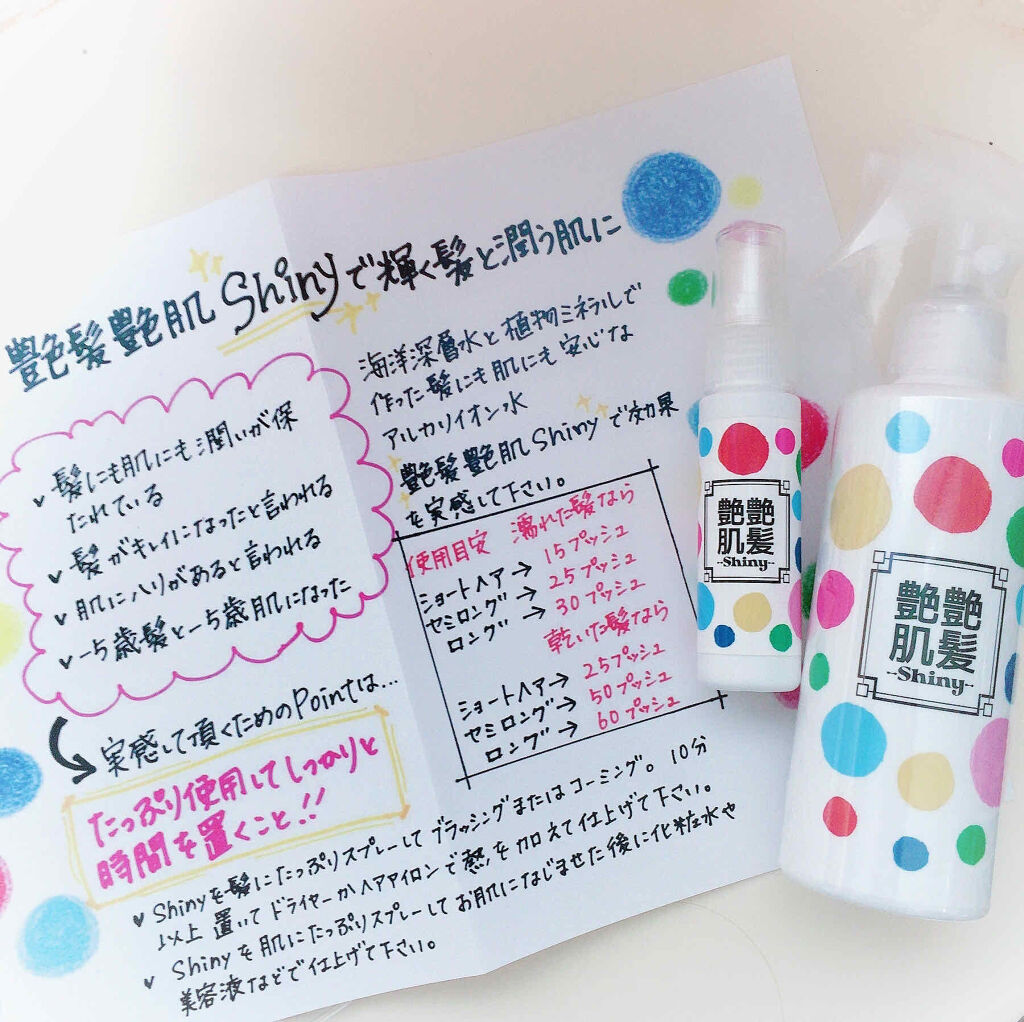 艶髪艶肌Shinyで輝く髪と潤う肌に
✓ 髪にも肌にも潤いが保
たれている
✓ 髪がキレイになったと言われる
✓ 肌にハリがあると言われる
✓ −5歳髪と−5歳肌になった
海洋深層水と植物ミネラルで
作った髪にも肌にも安心な
アルカリイオン水
艶髪艶肌Shinyで効果
を実感して下さい。
使用目安 濡れた髪なら
ショートヘア→ 15プッシュ
セミロング→ 25プッシュ
ロング→ 30プッシュ
乾いた髪なら
ショートヘアー→ 25プッシュ
セミロング→ 50プッシュ
ロング→ 60プッシュ
実感して頂くためのPointは...
たっぷり使用してしっかりと
時間を置くこと!!
✓ Shinyを髪にたっぷりスプレーしてブラッシングまたはコーミング。10分
以上置いてドライヤーかヘアアイロンで熱を加えて仕上げて下さい。
✓ Shinyを肌にたっぷりスプレーしてお肌になじませた後に化粧水や
美容液などで仕上げて下さい。
艶艶
肌髪
-Shiny-
艶艶
肌髪
-Shiny-